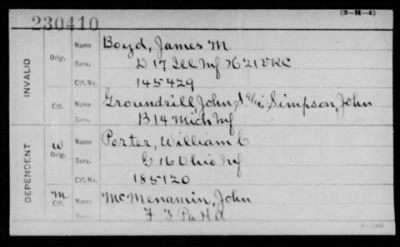 (3-H-4)
230410
INVALID
Orig.
Name Boyd, James M.
Serv. D 17 Ill Inf H 21 VRC
Ctf. No. 145429
Ctf. Name Groundrill, John Simpson, John
Serv. B 14 Mich Inf
DEPENDENT
W Orig.
Name Porter, William C
Serv. G 16 Ohio Inf
Ctf. No. 185120
M Ctf.
Name McMenamin, John
Serv. F 3 Pa H A